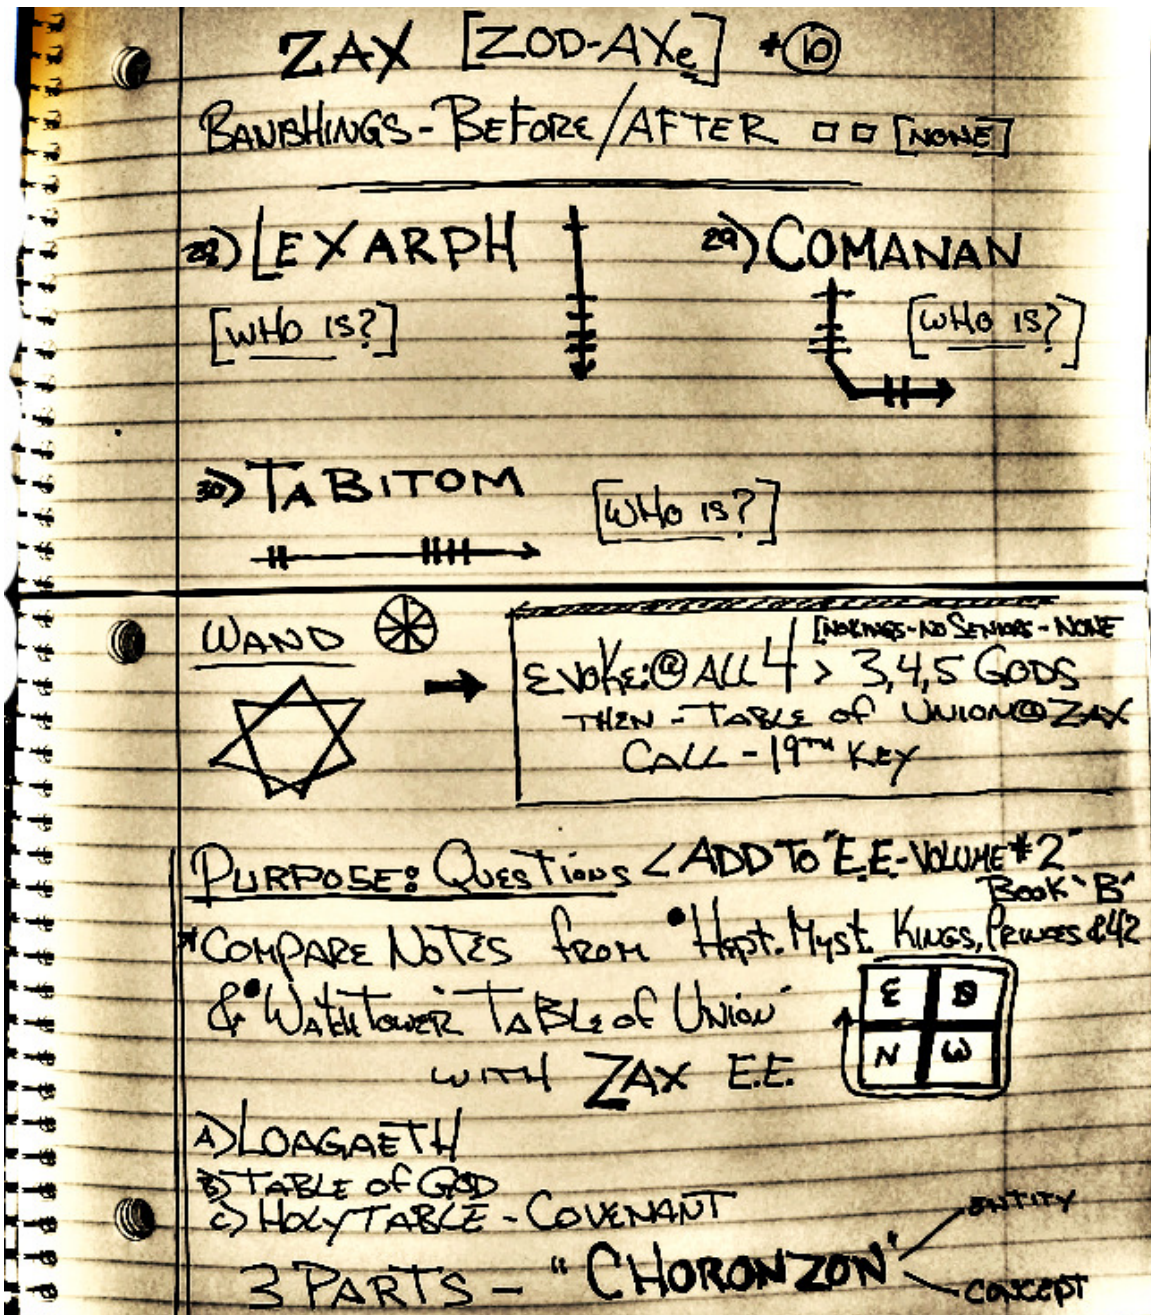 ZAX [ZOD-AXe] *10
BANISHINGS - BEFORE/AFTER [NONE]
28) LEXARPH
[WHO IS?]
29) COMANAN
[WHO IS?]
30) TABITOM
[WHO IS?]
WAND
[NO KINGS - NO SENIORS - NONE
EVOKE: @ ALL 4 > 3,4,5 GODS
THEN - TABLE OF UNION @ ZAX
CALL - 19TH KEY
PURPOSE: QUESTIONS < ADD TO "E.E-VOLUME #2"
BOOK "B"
*COMPARE NOTES FROM "Hept. Myst. KINGS, PRINCES & 42
& "WATCHTOWER TABLE OF UNION"
WITH ZAX E.E.
E S
N W
A) LOAGAETH
B) TABLE OF GOD
C) HOLY TABLE - COVENANT
3 PARTS - "CHORONZON"
ENTITY
CONCEPT